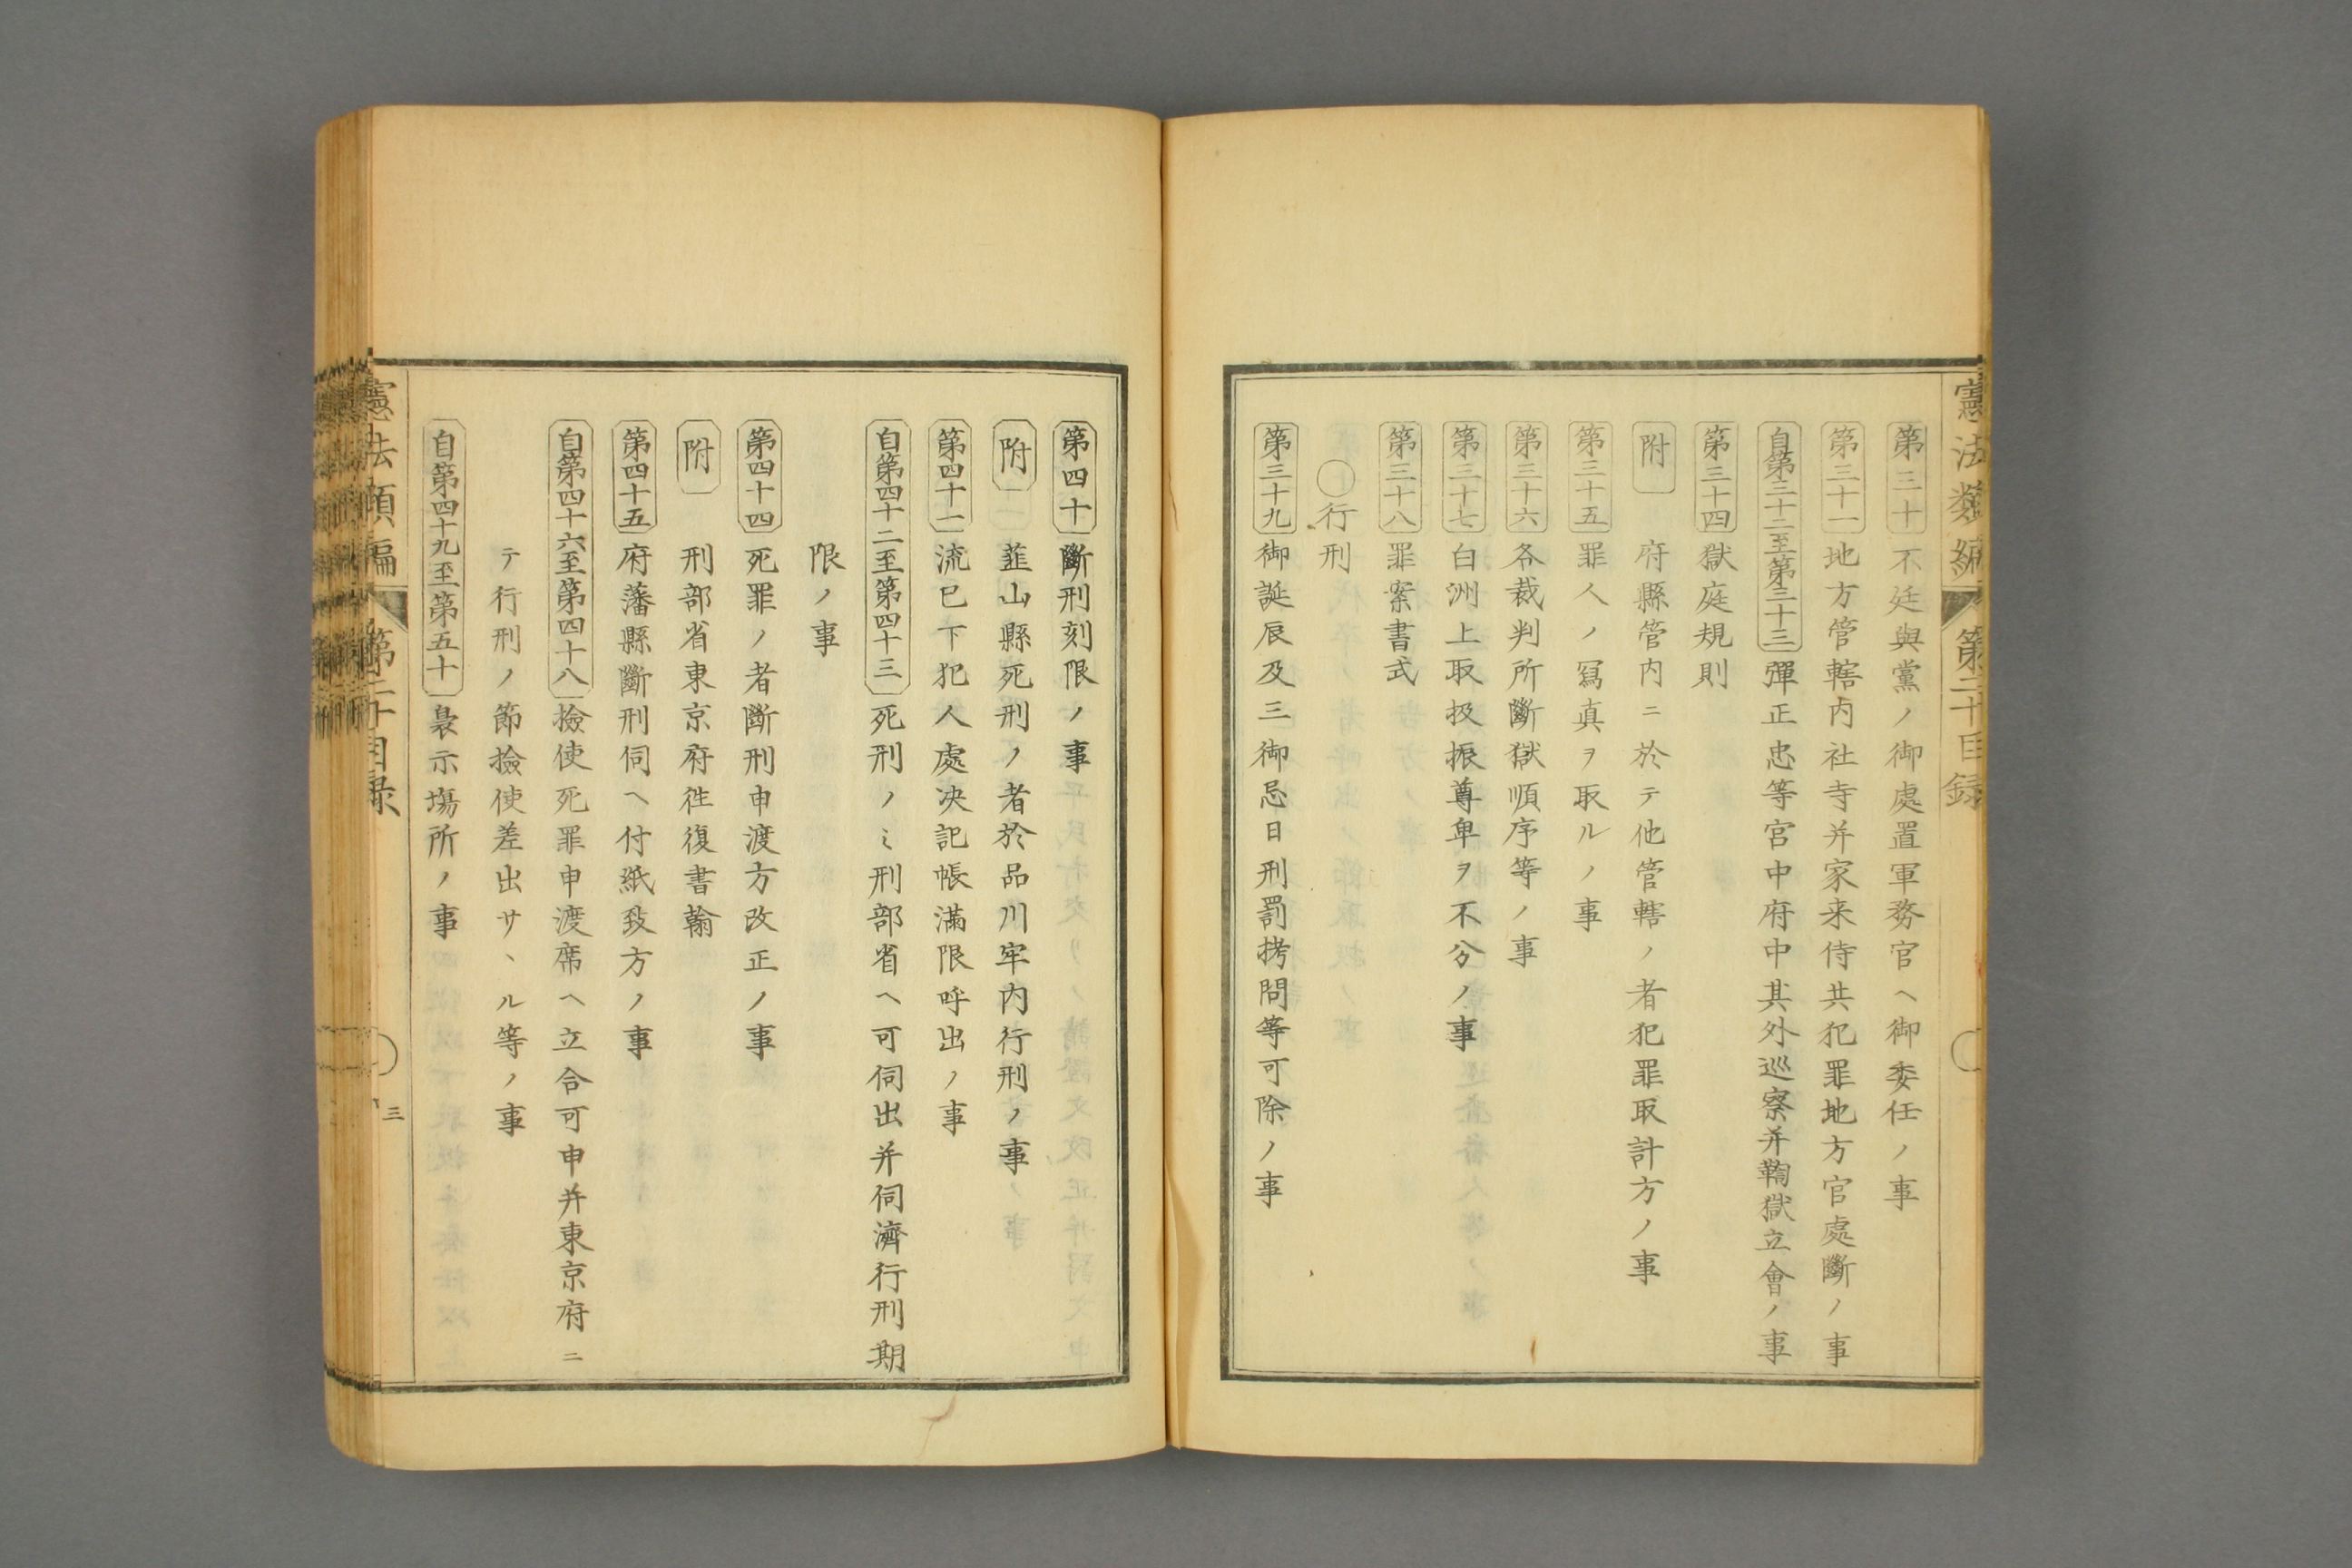 憲法類編 第二十目録
第三十 不廷與黨ノ御處置軍務官ヘ御委任ノ事
第三十一 地方管轄内社寺并家来侍共犯罪地方官處斷ノ事
自第三十二至第三十三 彈正忠等宮中府中其外巡察并鞫獄立會ノ事
第三十四 獄庭規則
附 府縣管内ニ於テ他管轄ノ者犯罪取計方ノ事
第三十五 罪人ノ冩真ヲ取ルノ事
第三十六 各裁判所斷獄順序等ノ事
第三十七 白洲上取扱振尊卑ヲ不分ノ事
第三十八 罪案書式
〇行刑
第三十九 御誕辰及三御忌日刑罰拷問等可除ノ事
第四十 斷刑刻限ノ事
附 韮山縣死刑ノ者於品川牢内行刑ノ事
第四十一 流已下犯人處决記帳滿限呼出ノ事
自第四十二至第四十三 死刑ノミ刑部省ヘ可伺出并伺濟行刑期
限ノ事
第四十四 死罪ノ者斷刑申渡方改正ノ事
附 刑部省東京府徃復書翰
第四十五 府藩縣斷刑伺ヘ付紙致方ノ事
自第四十六至第四十八 撿使死罪申渡席ヘ立合可申并東京府ニ
テ行刑ノ節撿使差出サヽル等ノ事
自第四十九至第五十 梟示塲所ノ事
憲法類編 第二十目録 三